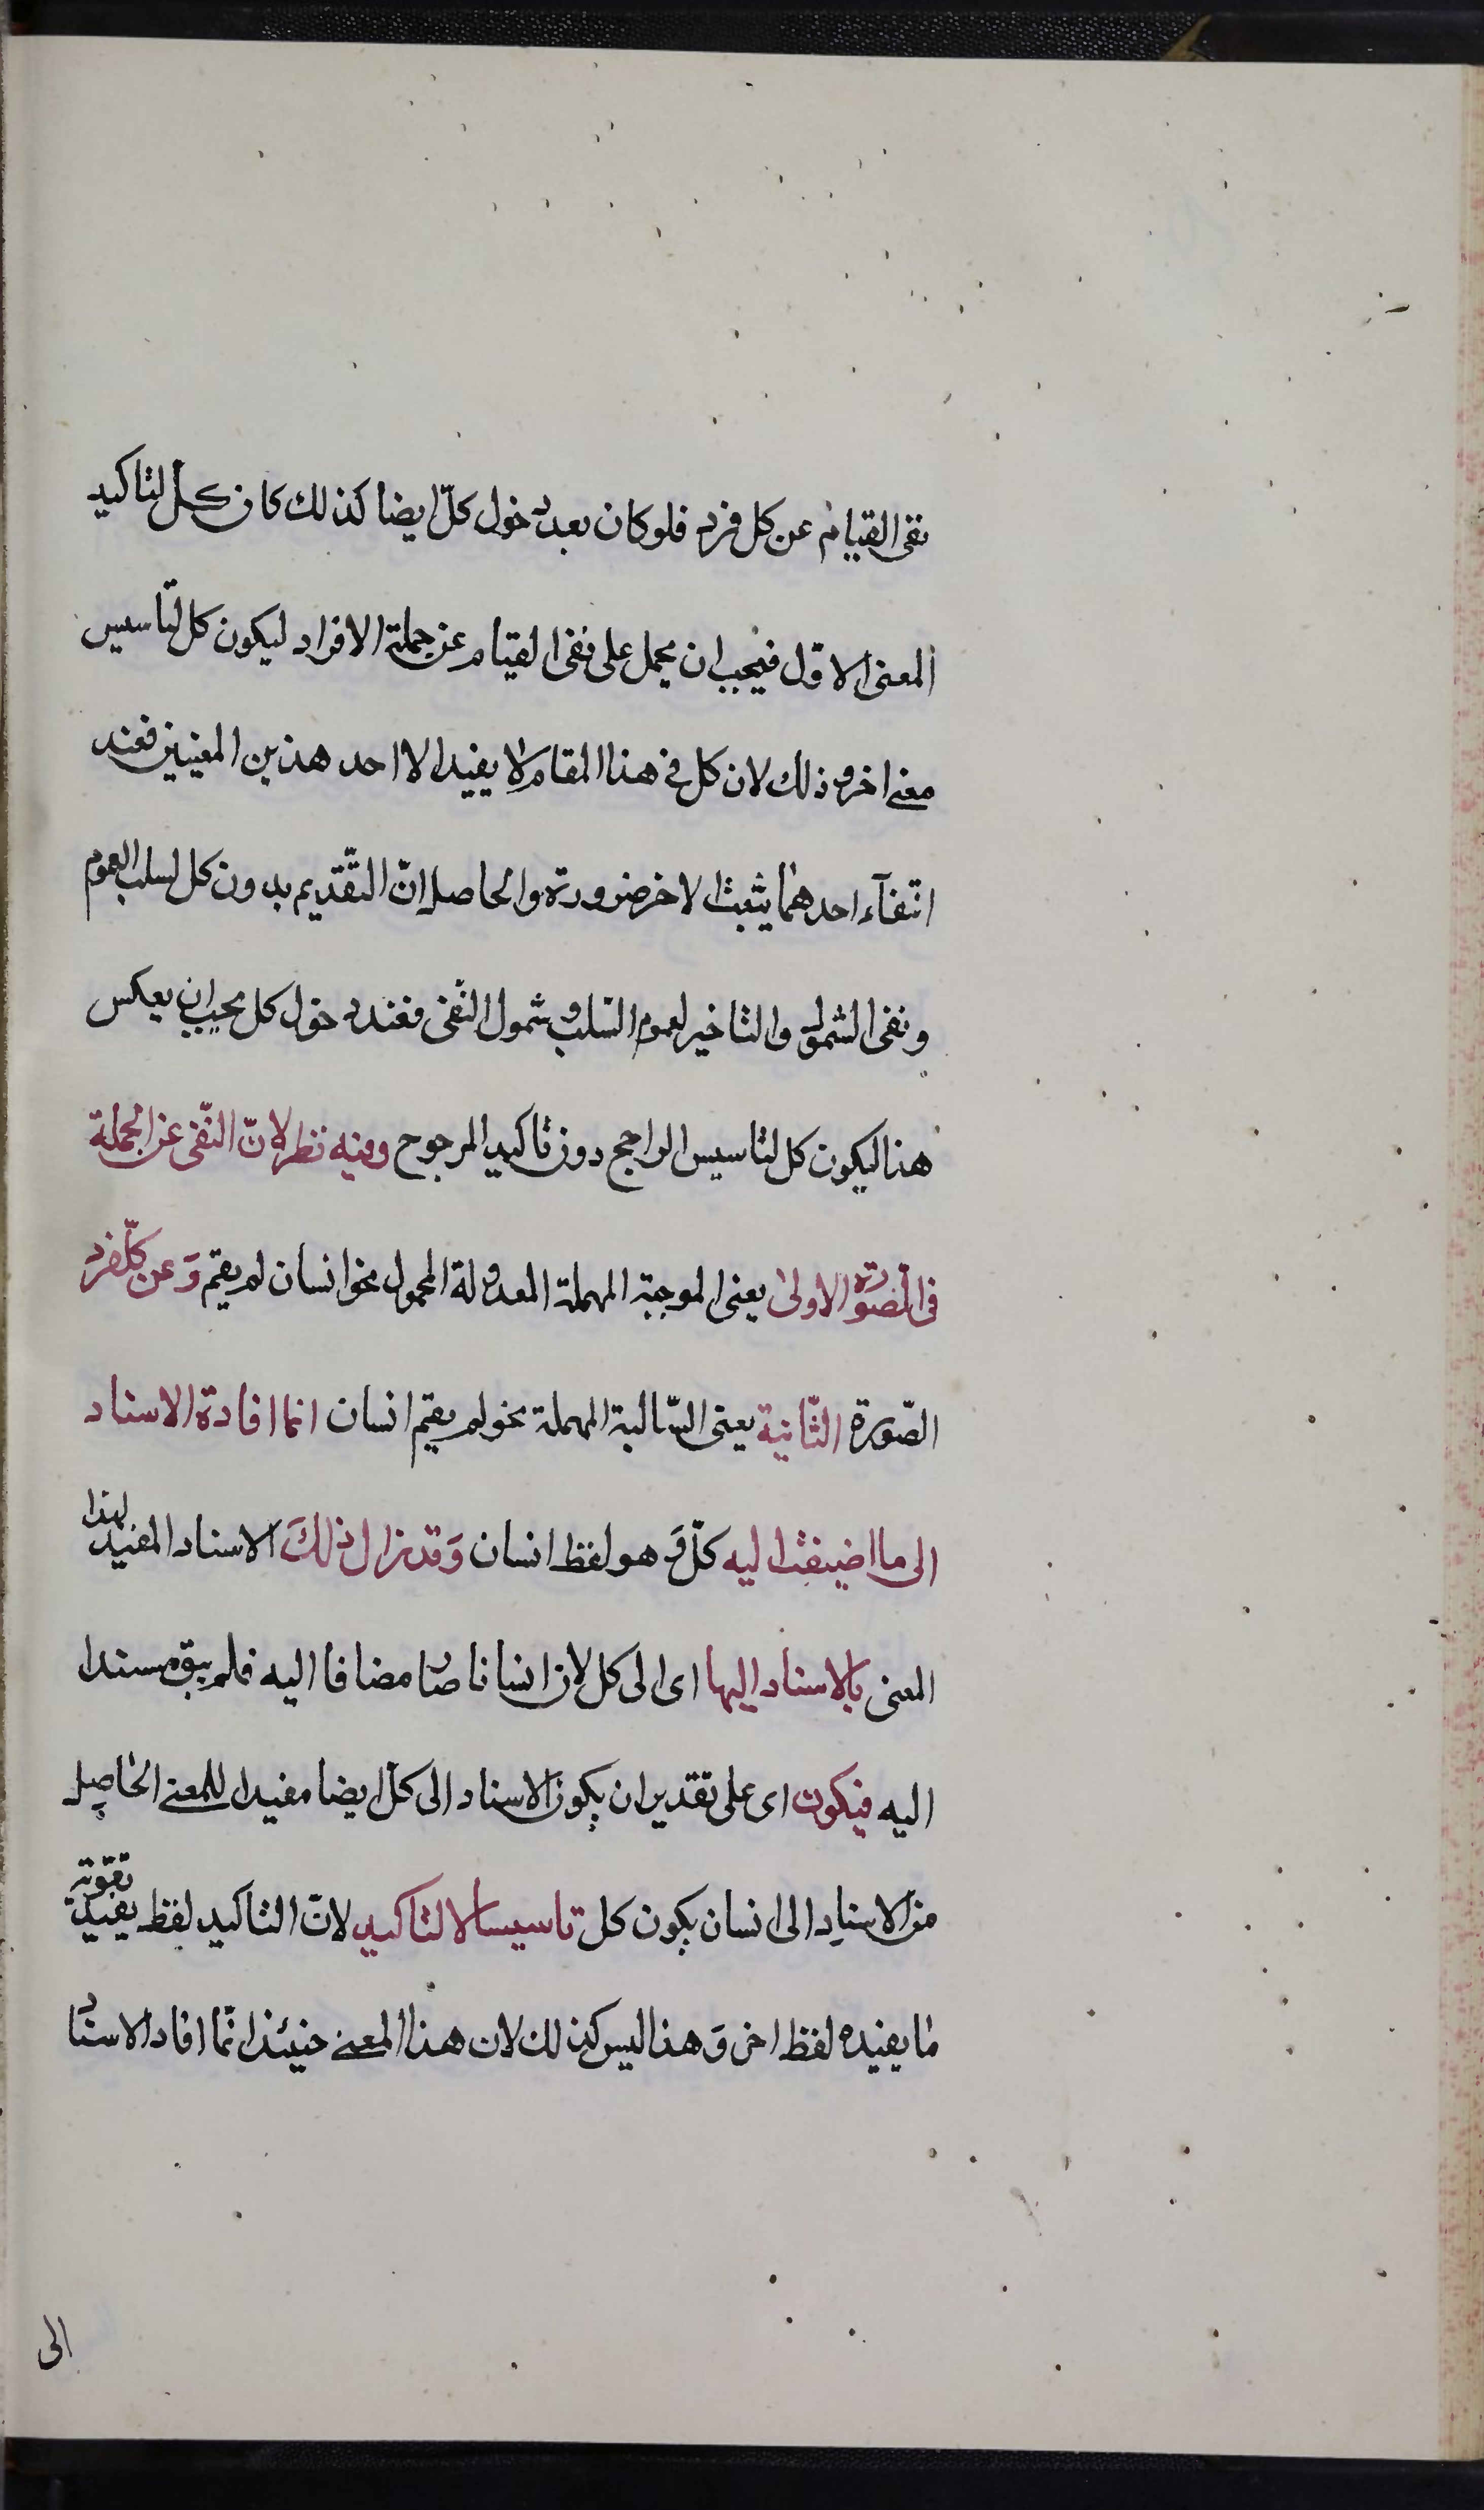 نفى القيام عن كل فرد فلو كان بعد دخول كلّ ايضا كذلك كان كل لتاكيد
المعنى الاوّل فيجب ان يحمل على نفى القيام عن جملة الافراد ليكون كل لتاسيس
معنى اخر و ذلك لان كل فى هذا المقام لا يفيد الا احد هذين المعنيين فعند
انتفآء احدهما يثبت الاخر ضرورة والحاصل انّ التقديم بدون كل لسلب العموم
و نفى الشمول و التاخير لعموم السّلب و شمول النّفى فعند دخول كل يجب ان يعكس
هذا ليكون كل لتاسيس الراجح دون تاكيد المرجوح وفيه نظر لانّ النّفى عن الجملة
فى الصّورة الاولى يعنى الموجبة المهملة المعدولة المحمول نحو انسان لم يقم وَ عن كلّ فرد
الصّورة الثّانية يعنى السّالبة المهملة نحو لم يقم انسان انما افادة الاسناد
الى ما اضيفت اليه كلّ وَ هو لفظ انسان وَ قد زال ذلكَ الاسناد المفيد لهذا
المعنى بالاسناد اليها اى الى كل لان انسانا صار مضافا اليه فلم يبق مسندا
اليه فيكون اى على تقدير ان يكون الاسناد الى كل ايضا مفيدا للمعنى الحاصل
من الاسناد الى انسان يكون كل تاسيسا لا لتاكيد لانّ التاكيد لفظ يفيد تقوية
ما يفيده لفظ اخر وَ هذا ليس كذلك لان هذا المعنى حينئذ انّما افاد الاسناد
الى